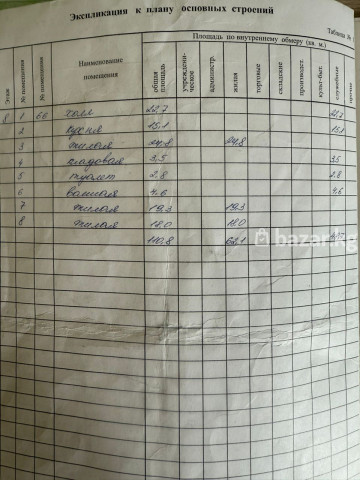 Экспликация к плану основных строений
Таблица №
Этаж
№ помещения
№ помещения
Наименование помещения
Площадь по внутреннему обмеру (кв. м.)
общая площадь
учрежденческое
администр.
жилая
торговые
складские
производст.
культ-быт.
служебные
прочие
8 1 66 холл 22,7 22,7
2 кухня 15.1 15.1
3 жилая 24,8 24,8
4 кладовая 3,5 3,5
5 туалет 2.8 2.8
6 ванная 4.6 4,6
7 жилая 19.3 19.3
8 жилая 18.0 18.0
110.8 62.1
bazar.kg